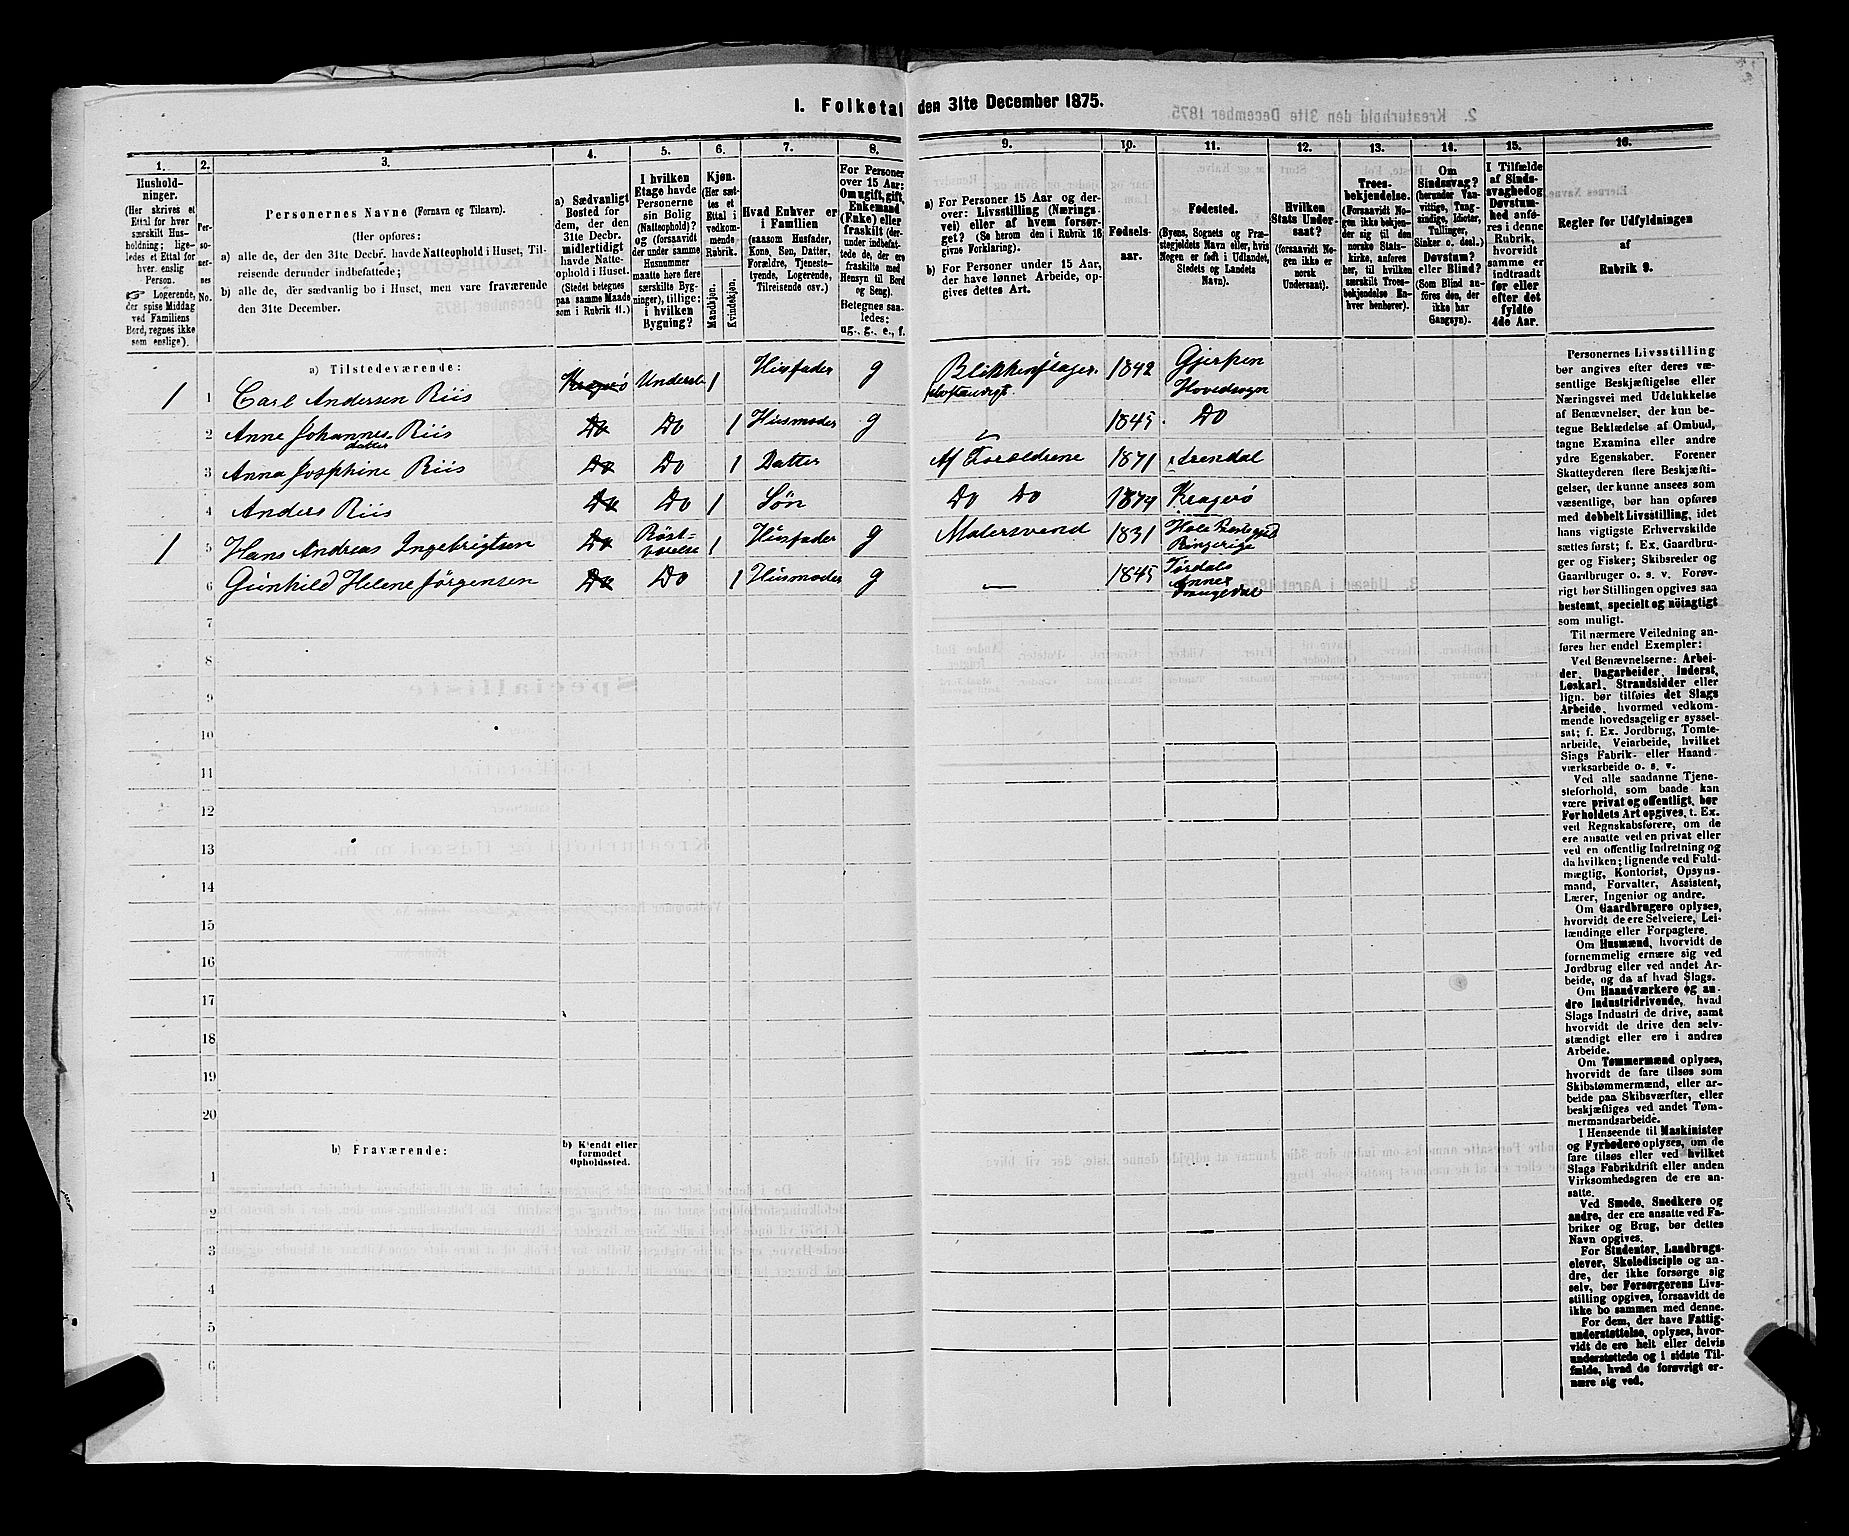 1. Folketal den 31te December 1875.
1.
Hushold-
ninger.
(Her skrives et
Ettal for hver
særskilt Hus-
holdning; lige-
ledes et Ettal for
hver enslig
Person.
☞ Logerende,
der spise Middag
ved Familiens
Bord, regnes ikke
som enslige).
2.
Per-
so-
ner-
nes
No.
3.
Personernes Navne (Fornavn og Tilnavn).
(Her opføres:
a) alle de, der den 31te Decbr. havde Natteophold i Huset, Til-
reisende derunder indbefattede;
b) alle de, der sædvanlig bo i Huset, men vare fraværende
den 31te December.
4.
a) Sædvanligt
Bosted for
dem, der den
31te Decbr.
midlertidigt
havde Natte-
ophold i Huset.
(Stedet betegnes
paa samme Maade
som i Rubrik 11.)
5.
I hvilken
Etage havde
Personerne
sin Bolig
(Natteophold)?
og (forsaavidt
der under samme
Husnummer
maatte høre flere
særskilte Byg-
ninger), tillige:
i hvilken
Bygning?
6.
Kjøn.
(Her sæt-
tes et
Ettal i
vedkom-
mende
Rubrik.
Mandkjøn.
Kvindekjøn.
7.
Hvad Enhver er
i Familien
(saasom Husfader,
Kone, Søn, Datter,
Forældre, Tjeneste-
tyende, Logerende,
Tilreisende osv.)
8.
For Personer
over 15 Aar:
Om ugift, gift,
Enkemand
(Enke) eller
fraskilt (der-
under indbefat-
tede de, der ere
fraskilte med
Hensyn til Bord
og Seng).
Betegnes saa-
ledes:
ug., g., e., f.
9.
a) For Personer 15 Aar og der-
over: Livsstilling (Nærings-
vei) eller af hvem forsør-
get? (Se herom den i Rubrik 16
givne Forklaring).
b) For Personer under 15 Aar,
der have lønnet Arbeide, op-
gives dettes Art.
10.
Fødsels-
aar.
11.
Fødested.
(Byens, Sognets og Præ-
stegjeldets Navn eller, hvis
Nogen er født i Udlandet,
Stedets og Landets
Navn).
12.
Hvilken
Stats Under-
saat?
(forsaavidt No-
gen ikke er
norsk
Undersaat).
13.
Troes-
bekjendelse.
(Forsaavidt No-
gen ikke bekjen-
der sig til den
norske Stats-
kirke, anføres
her, til hvilken
særskilt Troes-
bekjendelse En-
hver henhører).
14.
Om
Sindssvag?
(herunder Van-
vittige, Tung-
sindige, Idioter,
Tullinger,
Sinker o. desl.)
Døvstum?
eller Blind?
(Som Blind an-
føres den, der
ikke har
Gangsyn).
15.
I Tilfælde
af Sinds-
svaghed og
Døvstum-
hed anfø-
res i denne
Rubrik,
hvorvidt
samme er
indtraadt
før eller
efter det
fyldte
4de Aar.
16.
Regler for Udfyldningen
af
Rubrik 9.
a) Tilstedeværende:
1 1 Carl Andersen Riis Kragerø Underste 1 Husfader g Blikkenslager selvstændigt. 1842 Gjerpen Hovedsogn
2 Anne Johannes- datter Riis Do Do 1 Husmoder g 1845. Do
3 Anna Josephine Riis Do Do 1 Datter Af Forældrene 1871 Arendal
4 Anders Riis Do Do 1 Søn Do Do 1874 Kragerø
1 5 Hans Andreas Ingebrigtsen Do 1 Husfader g Malersvend 1831 Hole Ringerige
6 Gunhild Helene Jørgensen Do Do 1 Husmoder g — 1845 Tørdals Annex Drangedal
7
8
9
10
11
12
13
14
15
16
17
18
19
20
b) Fraværende:
b) Kjendt eller
formodet
Opholdssted.
1
2
3
4
5
6
Personernes Livsstilling
bør angives efter deres væ-
sentlige Beskjæftigelse eller
Næringsvei med Udelukkelse
af Benævnelser, der kun be-
tegne Beklædelse af Ombud,
tagne Examina eller andre
ydre Egenskaber. Forener
Skatteyderen flere Beskjæfti-
gelser, der kunne ansees som
væsentlige, bør han opføres
med dobbelt Livsstilling, idet
hans vigtigste Erhvervskilde
sættes først; f. Ex. Gaardbru-
ger og Fisker; Skibsreder og
Gaardbruger o. s. v. Forøv-
rigt bør Stillingen opgives saa
bestemt, specielt og nøiagtigt
som muligt.
Til nærmere Veiledning an-
føres her endel Exempler:
Ved Benævnelserne: Arbei-
der, Dagarbeider, Inderst,
Løskarl, Strandsidder eller
lign. bør tilføies det Slags
Arbeide, hvormed vedkom-
mende hovedsagelig er syssel-
sat; f. Ex. Jordbrug, Tomte-
arbeide, Veiarbeide, hvilket
Slags Fabrik- eller Haand-
værksarbeide o. s. v.
Ved alle saadanne Tjene-
steforhold, som baade kan
være privat og offentligt, bør
Forholdets Art opgives, t. Ex.
ved Regnskabsførere, om de
ere ansatte ved en privat eller
ved en offentlig Indretning og
da hvilken; lignende ved Fuld-
mægtig, Kontorist, Opsyns-
mand, Forvalter, Assistent,
Lærer, Ingeniør og andre.
Om Gaardbrugere oplyses,
hvorvidt de ere Selveiere, Lei-
lændinge eller Forpagtere.
Om Husmænd, hvorvidt de
fornemmelig ernære sig ved
Jordbrug eller ved andet Ar-
beide, og da af hvad Slags.
Om Haandværkere og an-
dre Industridrivende, hvad
Slags Industri de drive, samt
hvorvidt de drive den selv-
stændigt eller ere i andres
Arbeide.
Om Tømmermænd oplyses,
hvorvidt de fare tilsøs som
Skibstømmermænd, eller ar-
beide paa Skibsværfter, eller
beskjæftiges ved andet Tøm-
mermandsarbeide.
I Henseende til Maskinister
og Fyrbødere oplyses, om de
fare tilsøs eller ved hvilket
Slags Fabrikdrift eller anden
Virksomhedsgren de ere an-
satte.
Ved Smede, Snedkere og
andre, der ere ansatte ved Fa-
briker og Brug, bør dettes
Navn opgives.
For Studenter, Landbrugs-
elever, Skoledisciple og an-
dre, der ikke forsørge sig
selv, bør Forsørgerens Livs-
stilling opgives, forsaavidt de
ikke bo sammen med denne.
For dem, der have Fattig-
understøttelse, oplyses, hvor-
vidt de ere helt eller delvis
understøttede og i sidste Til-
fælde, hvad de forøvrigt er-
nære sig ved.